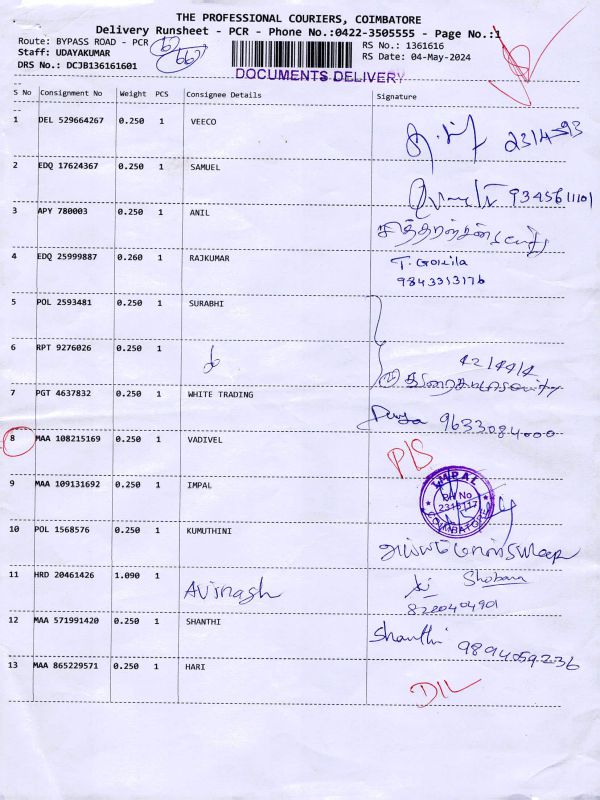 THE PROFESSIONAL COURIERS, COIMBATORE
Delivery Runsheet - PCR - Phone No.:0422-3505555 - Page No.:1
Route: BYPASS ROAD - PCR
RS No.: 1361616
Staff: UDAYAKUMAR
RS Date: 04-May-2024
DRS No.: DCJB136161601
DOCUMENTS DELIVERY
S No Consignment No Weight PCS Consignee Details Signature
1 DEL 529664267 0.250 1 VEECO
2 EDQ 17624367 0.250 1 SAMUEL
3 APY 780003 0.250 1 ANIL
4 EDQ 25999887 0.260 1 RAJKUMAR T. Gokila
9843313176
5 POL 2593481 0.250 1 SURABHI
6 RPT 9276026 0.250 1
42/44/4
7 PGT 4637832 0.250 1 WHITE TRADING
9633084000
8 MAA 108215169 0.250 1 VADIVEL P/S
9 MAA 109131692 0.250 1 IMPAL
IMPAL
COIMBATORE
10 POL 1568576 1 KUMUTHINI
11 HRD 20461426 1.090 1 Avinash Shobana
8200404901
12 MAA 571991420 0.250 1 SHANTHI Shanthi 9894059236
13 MAA 865229571 0.250 1 HARI D/L